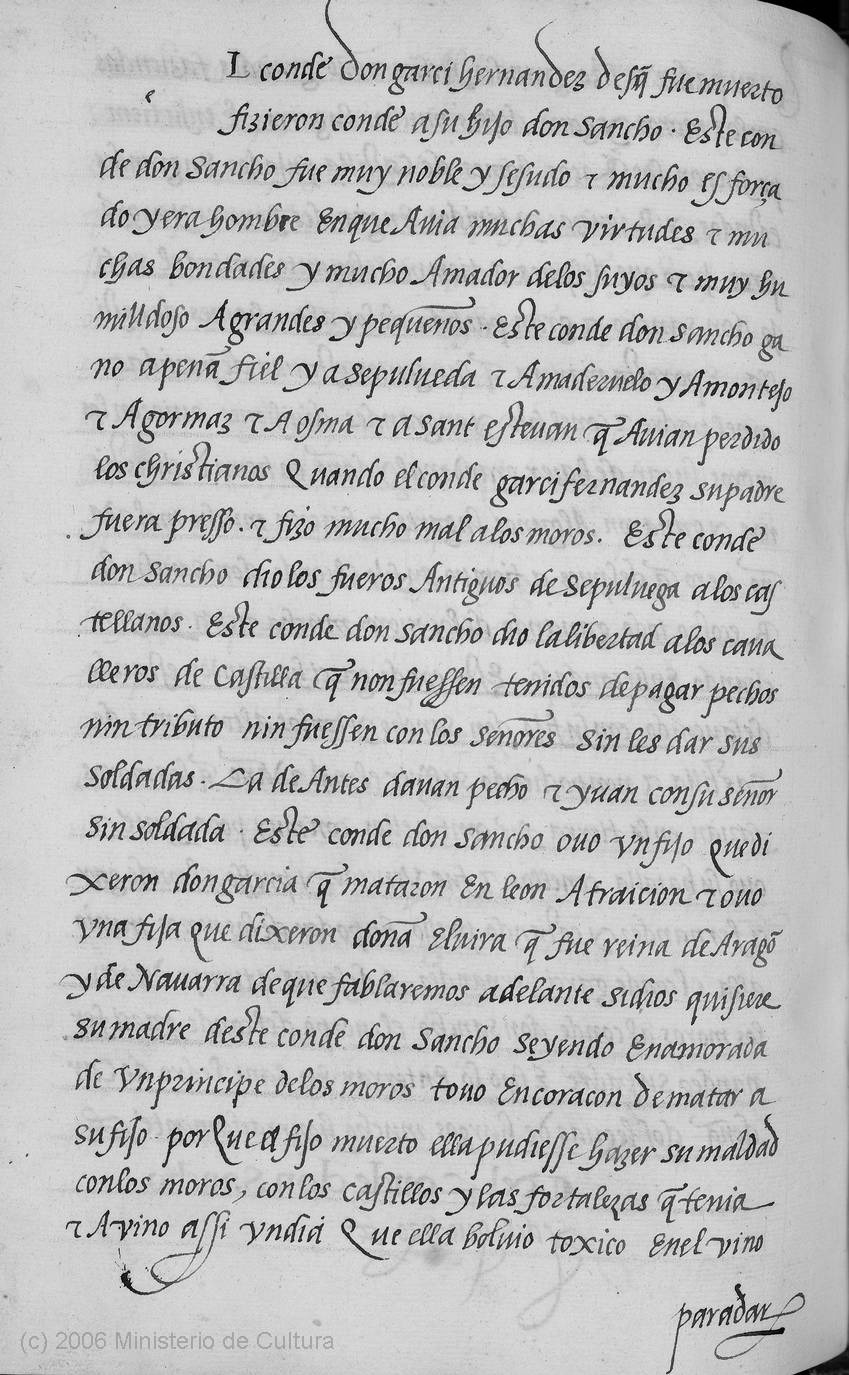 L conde don garci hernandez desq̃ fue muerto
e
fizieron conde a su hijo don Sancho · Este con
de don Sancho fue muy noble y sesudo ⁊ mucho esforça
do y era hombre En que Auia muchas virtudes ⁊ mu
chas bondades y mucho Amador de los suyos ⁊ muy hu
milldoso A grandes y pequen̄os · Este conde don Sancho ga
no a pen̄a fiel y a Sepulueda ⁊ A maderuelo y A montejo
⁊ A gormaz ⁊ A osma ⁊ a Sant esteuan q̃ Auian perdido
los christianos Quando el conde garci fernandez su padre
fuera presso · ⁊ fizo mucho mal a los moros · Este conde
don Sancho dio los fueros Antiguos de Sepuluega a los cas
tellanos · Este conde don Sancho dio la libertad a los caua
lleros de Castilla q̃ non fuessen tenidos de pagar pechos
nin tributo nin fuessen con los sen̄ores Sin les dar sus
Soldadas · Ca de Antes dauan pecho ⁊ yuan con su sen̄or
Sin soldada · Este conde don Sancho ouo vn fijo Que di
xeron don garcia q̃ mataron En leon A traicion ⁊ ouo
vna fija Que dixeron don̄a Eluira q̃ fue reina de Aragō
y de Nauarra de que fablaremos adelante Si dios quisiere
Su madre deste conde don Sancho Seyendo Enamorada
de vn principe de los moros touo En coracon de matar a
su fijo · por Que el fijo muerto ella pudiesse hazer su maldad
con los moros, con los castillos y las fortalezas q̃ tenia
⁊ A vino assi vn dia Que ella boluio toxico En el vino
para dar
(c) 2006 Ministerio de Cultura